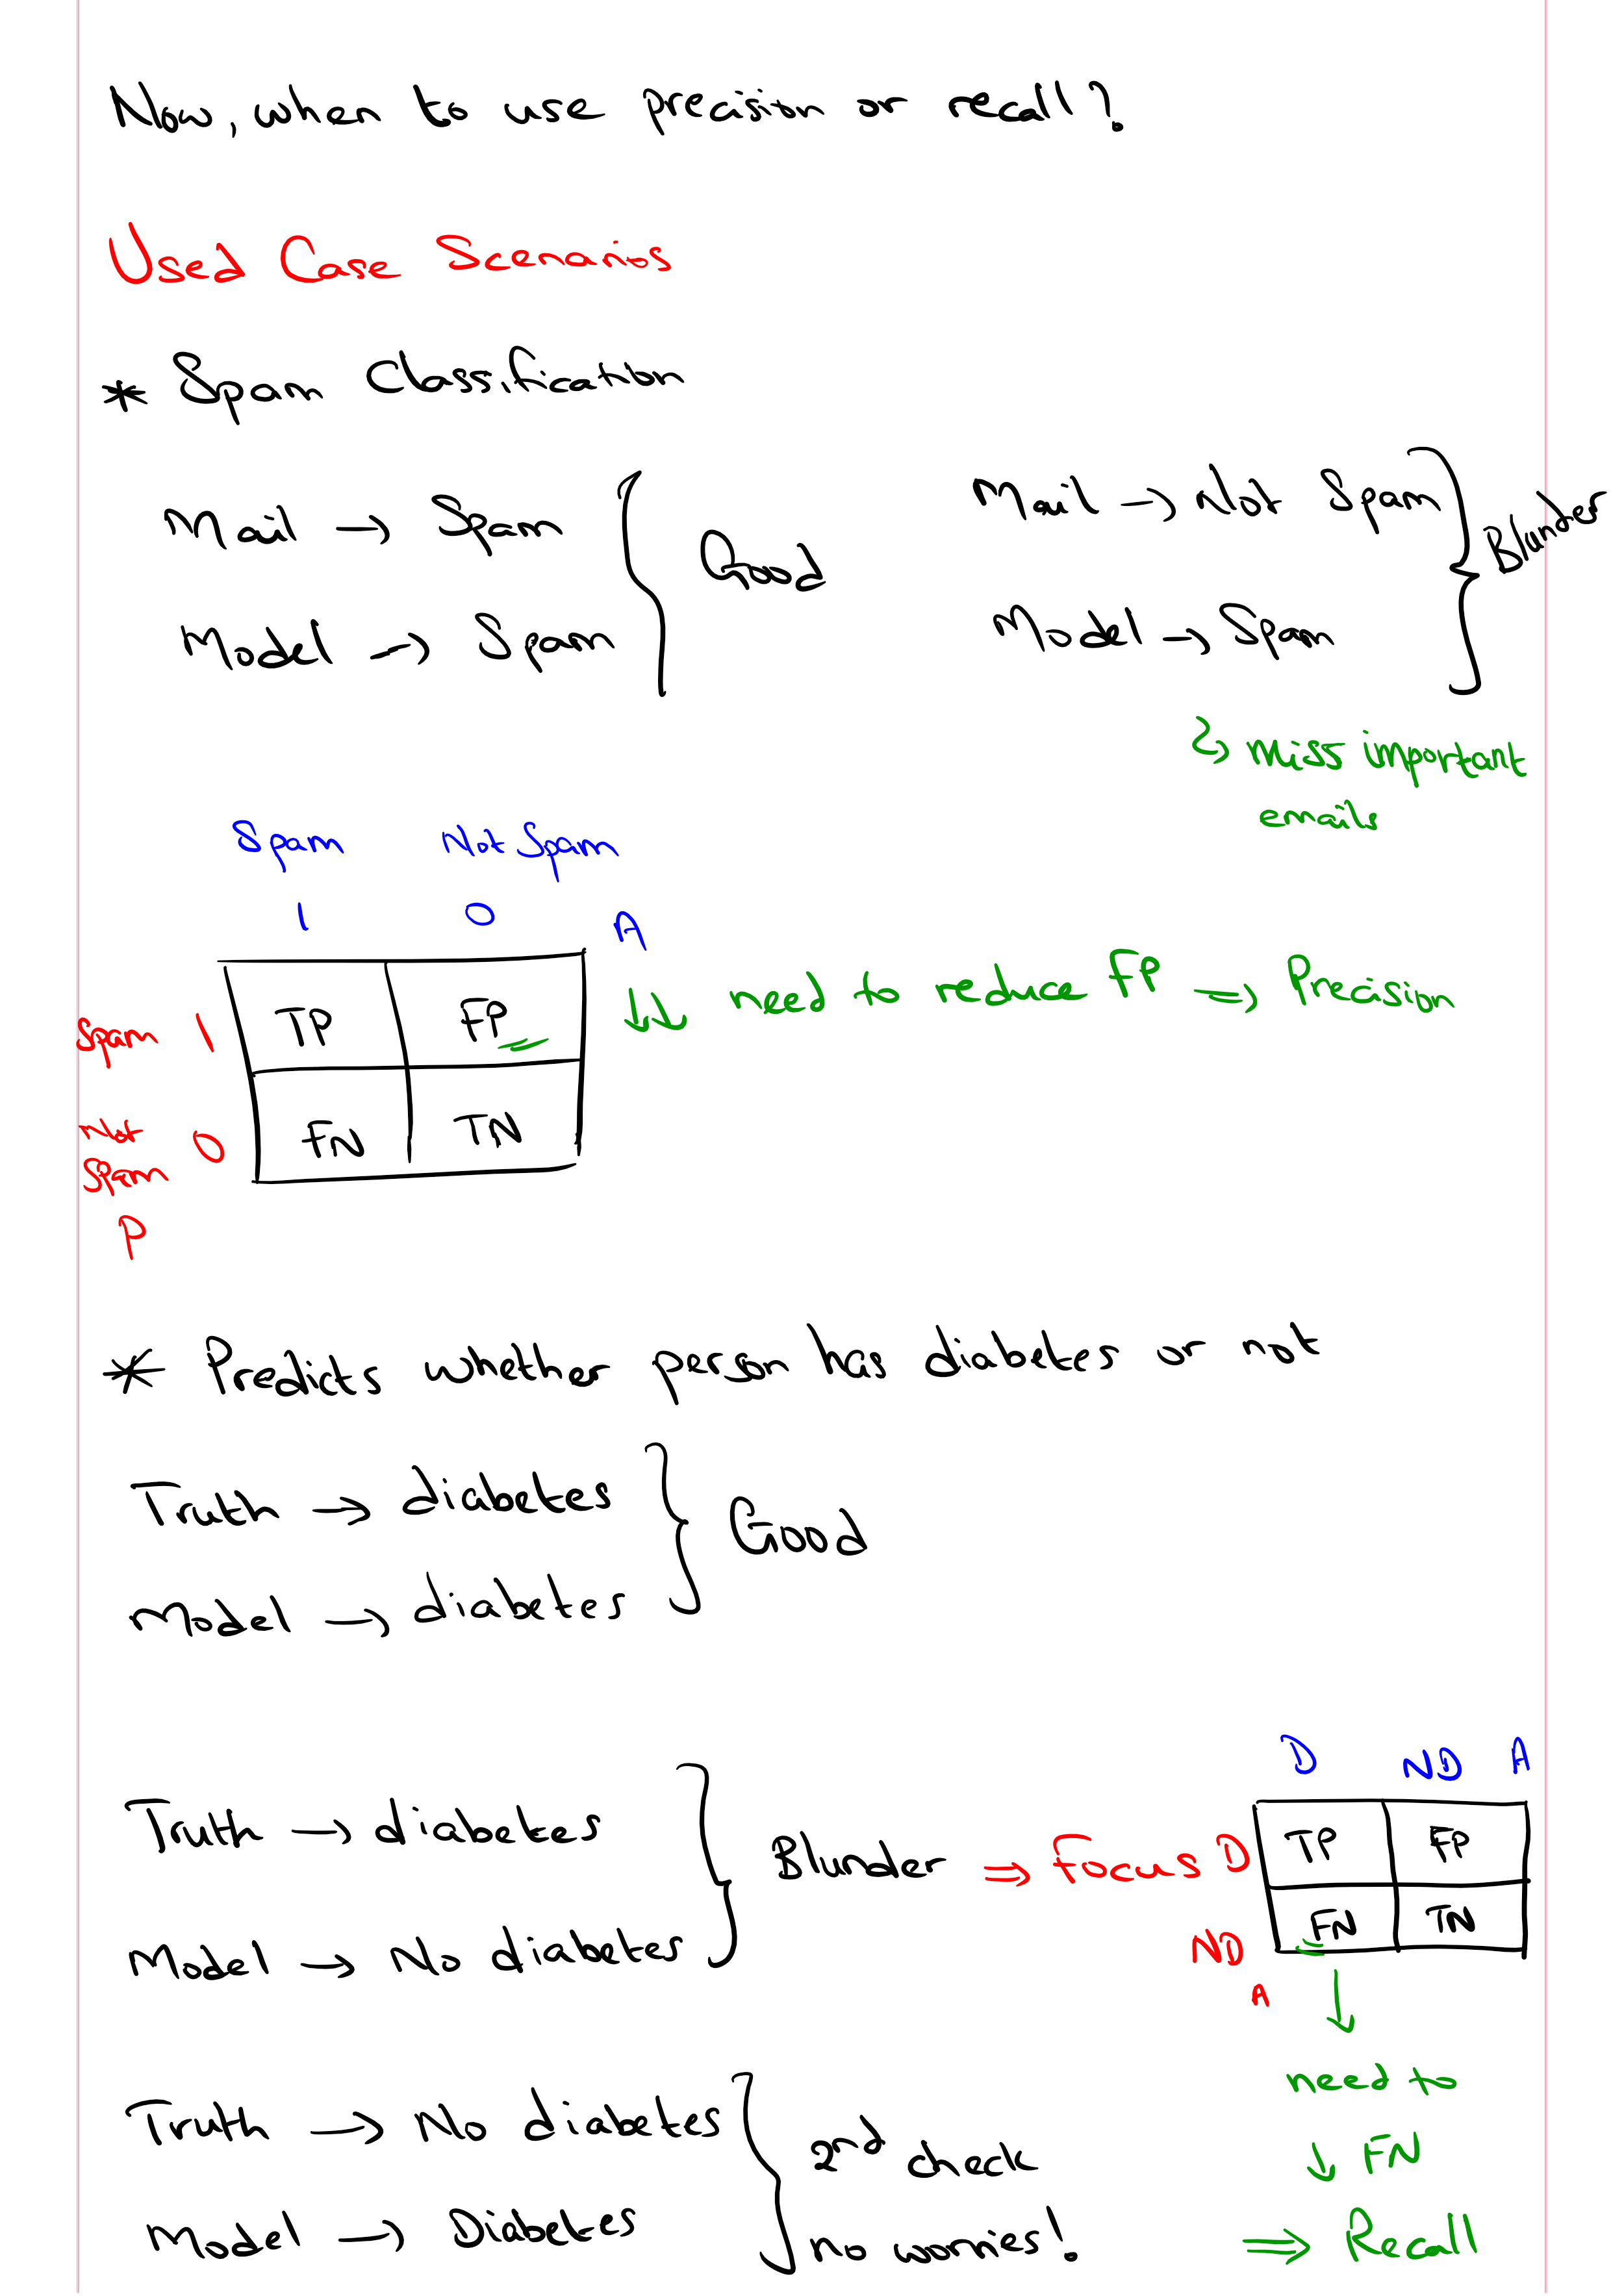 Now, when to use precision or recall?
Used Case Scenarios
* Spam Classification
Mail → Spam
Model → Spam
Good
Mail → Not Spam
Model → Spam
Blunder
↳ miss important
emails
Spam Not Spam
1 0 A
Spam 1 TP FP
Not
Spam 0 FN TN
P
↓↓ need to reduce FP ⇒ Precision
* Predicts whether person has diabetes or not
Truth → diabetes
Model → diabetes
Good
Truth → diabetes
Model → No diabetes
Blunder ⇒ Focus
D ND A
D TP FP
ND FN TN
A
↓
need to
↓ FN
⇒ Recall
Truth → No diabetes
Model → Diabetes
2nd check
no worries!